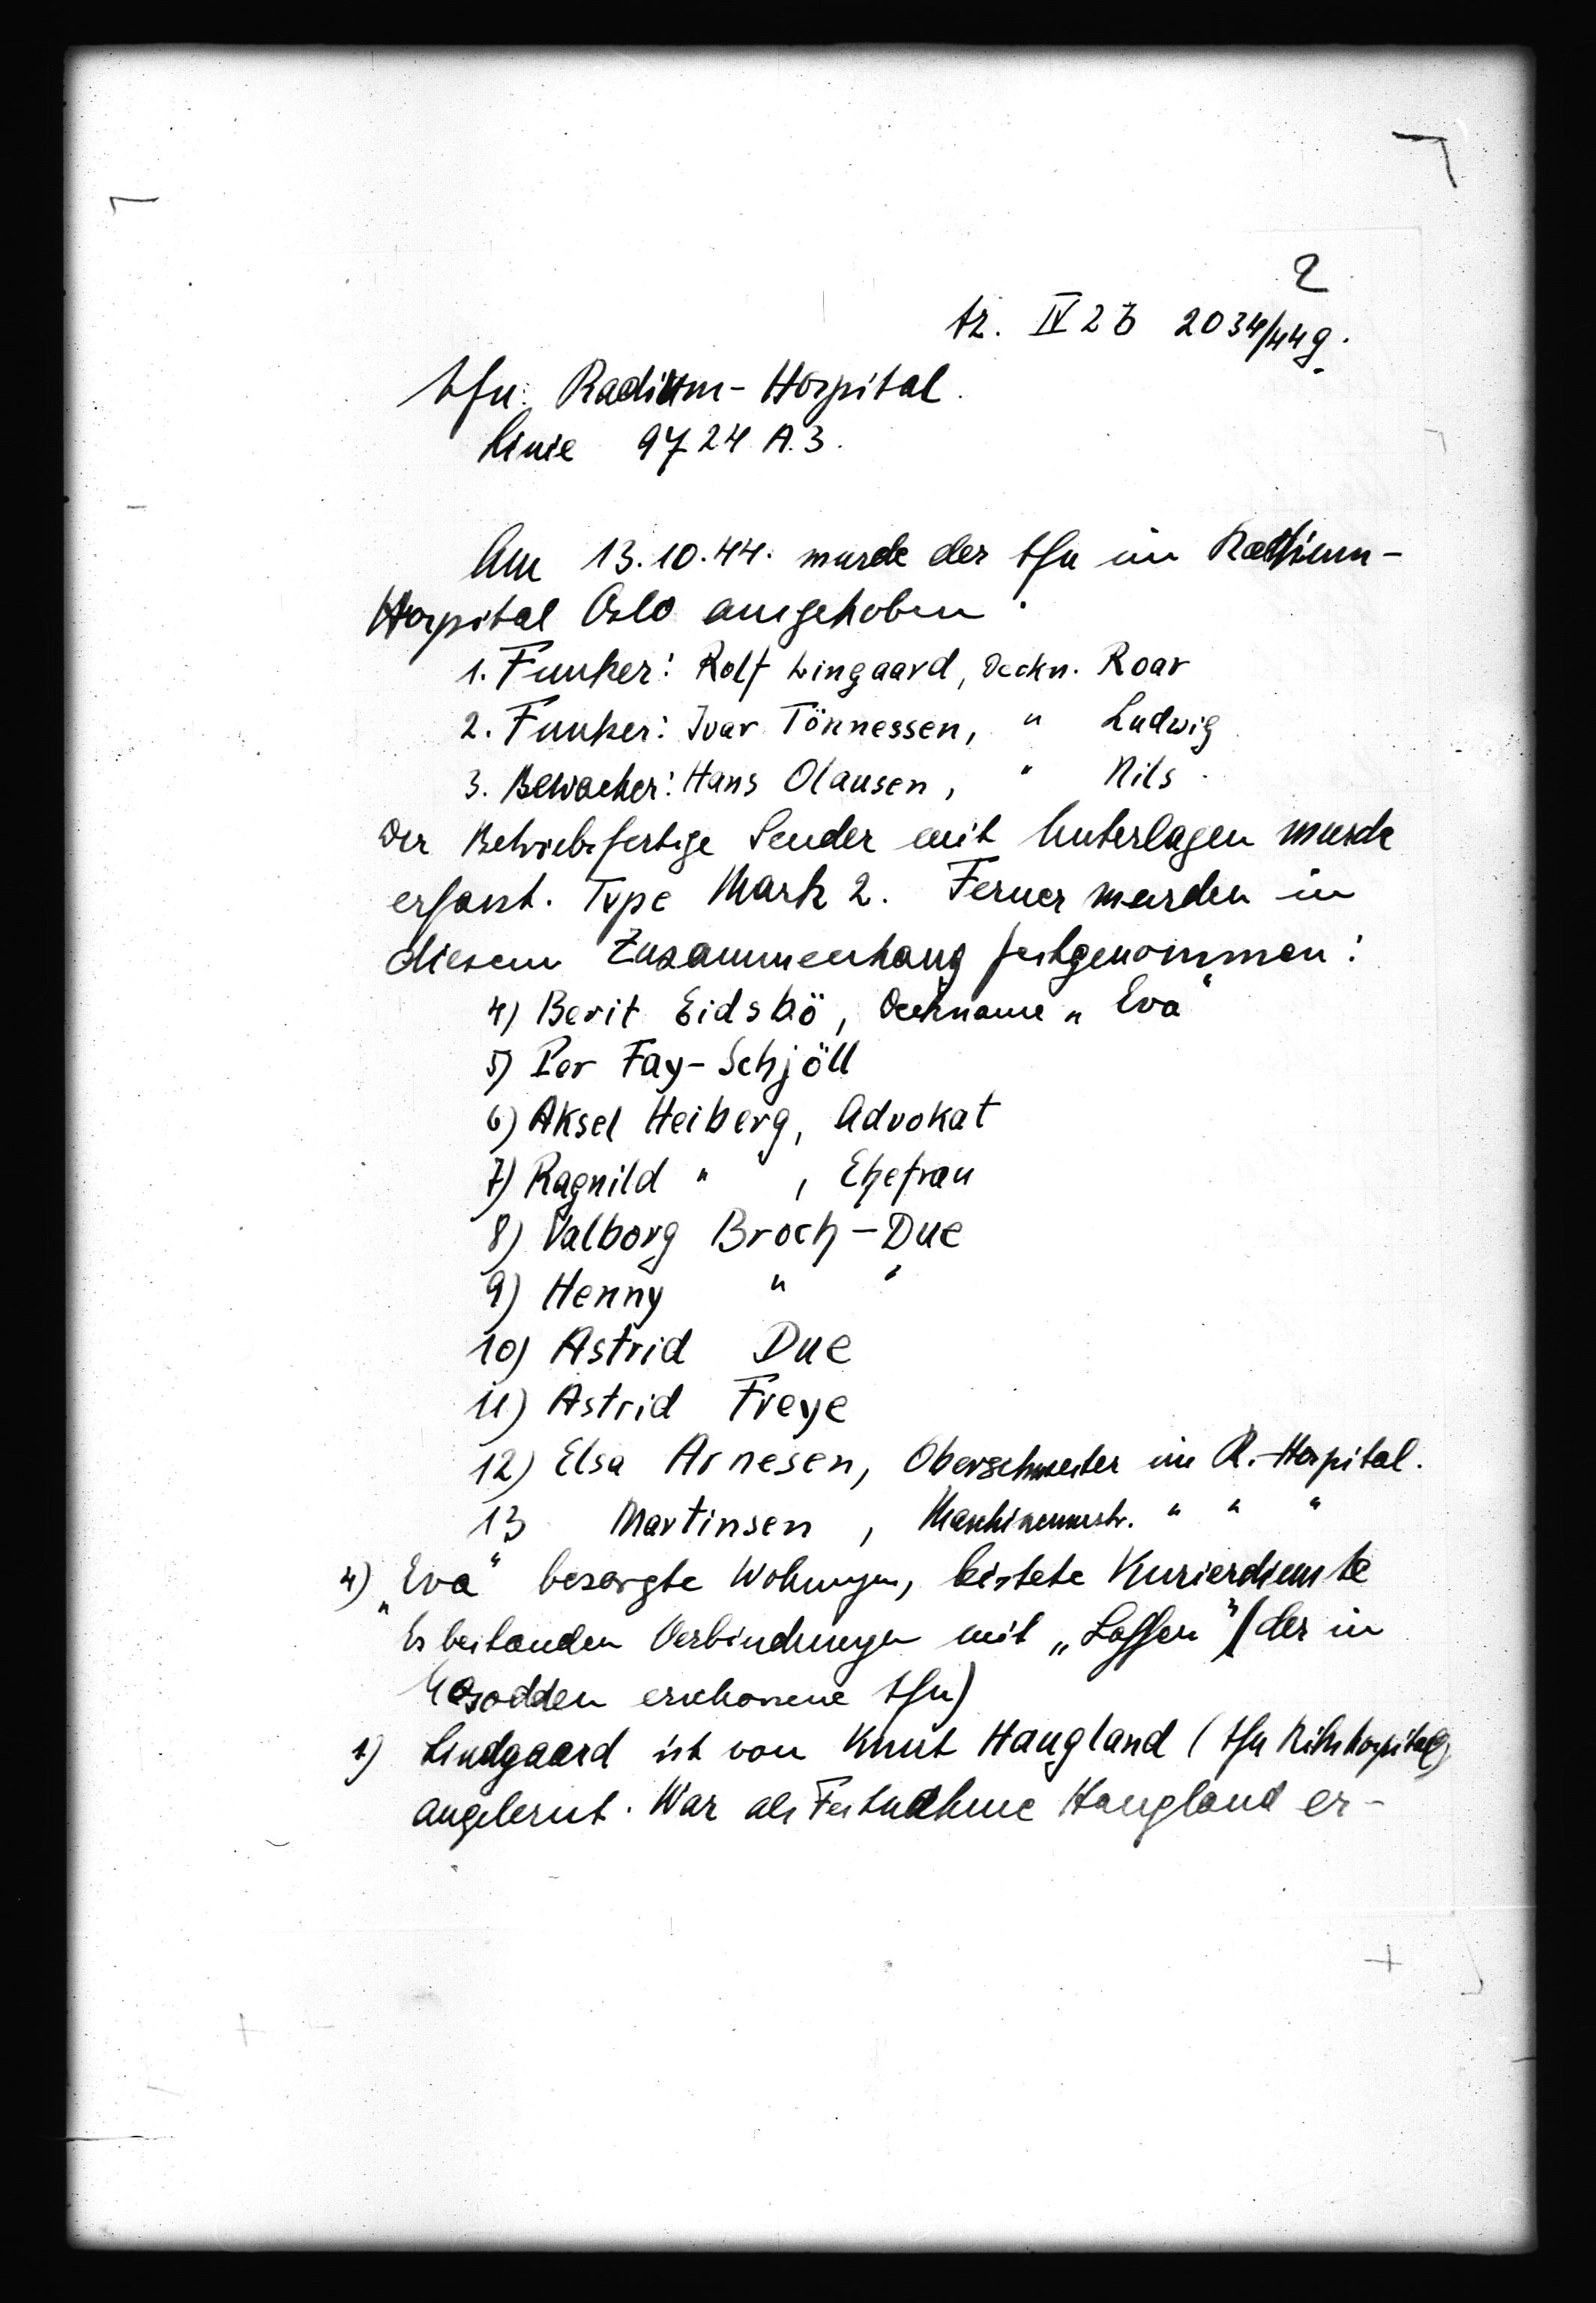 2
Az. IV 2 b 2034/44 g.
Afu: Radium-Hospital.
Linie 9724 A.3.
Am 13.10.44. wurde der Afu im Radium-
Hospital Oslo ausgehoben.
1. Funker: Rolf Lingaard, Deckn. Roar
2. Funker: Ivar Tönnessen, " Ludwig
3. Bewacher: Hans Olausen, " Nils.
Der Betriebsfertige Sender mit Unterlagen wurde
erfasst. Type Mark 2. Ferner wurden in
diesem Zusammenhang festgenommen:
4) Berit Eidsbö, Deckname „Eva"
5) Per Fay-Schjöll
6) Aksel Heiberg, Advokat
7) Ragnild " , Ehefrau
8) Valborg Broch-Due
9) Henny " "
10) Astrid Due
11) Astrid Freye
12) Elsa Arnesen, Oberschwester im R.-Hospital.
13 Martinsen, Maschinenmstr. " " "
4) „Eva" besorgte Wohnungen, leistete Kurierdienste
Es bestanden Verbindungen mit „Lassen" (der in
Nesodden erschossene Afu)
1) Lindgaard ist von Knut Haugland (Afu Rikshospital)
angelernt. War als Festnahme Haugland er-